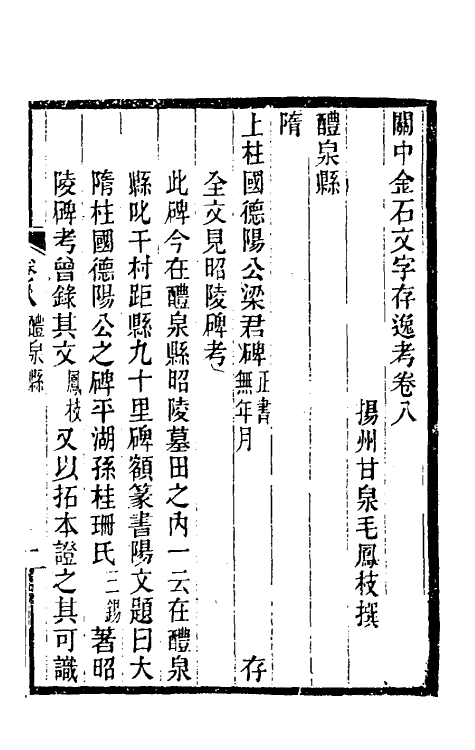 關中金石文字存逸考卷八
揚州甘泉毛鳳枝撰
醴泉縣
隋
上柱國德陽公梁君碑 正書 無年月 存
全文見昭陵碑考
此碑今在醴泉縣昭陵墓田之內一云在醴泉
縣叱干村距縣九十里碑額篆書陽文題曰大
隋柱國德陽公之碑平湖孫桂珊氏 三錫 著昭
陵碑考曾錄其文 鳳枝 又以拓本證之其可識
卷八 醴泉縣 一